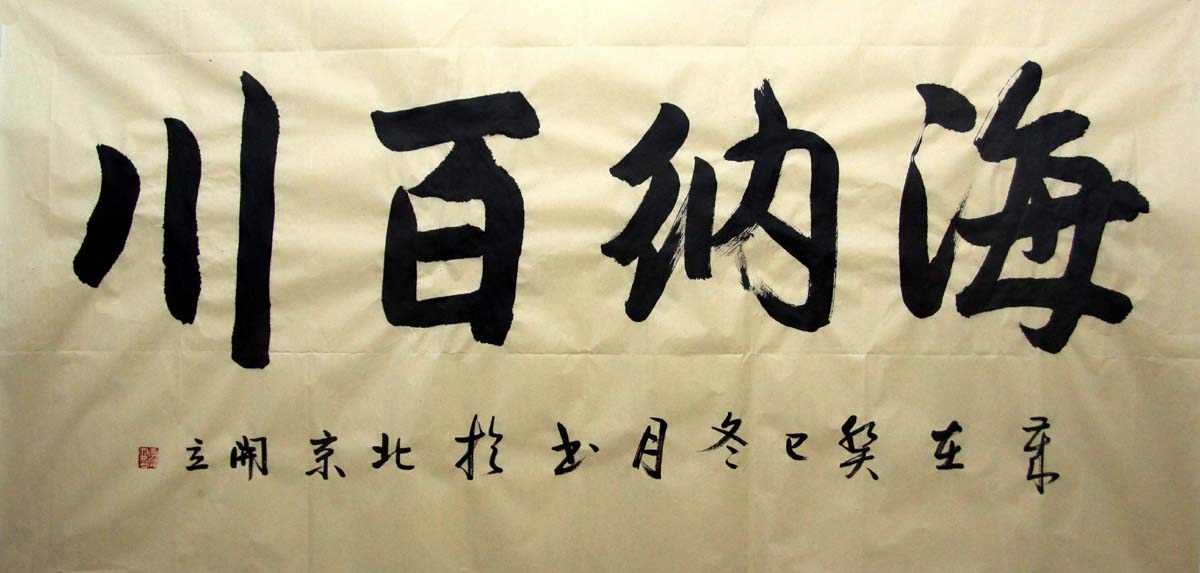 海纳百川
岁在癸巳冬月书於北京開立